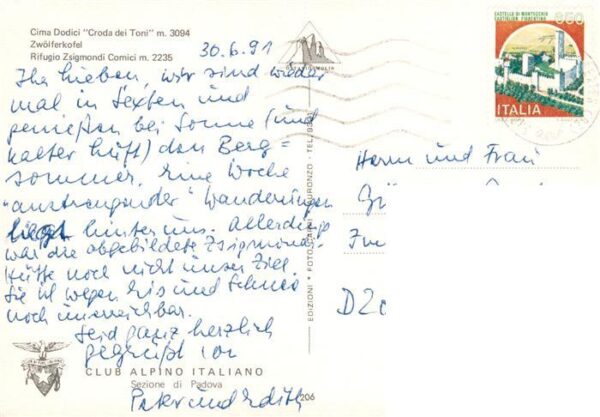 Cima Dodici "Croda dei Toni" m. 3094
Zwölferkofel
Rifugio Zsigmondi Comici m. 2235
30.6.91
Ihr Lieben, wir sind wieder
mal in Sexten und
genießen bei Sonne (und
kalter Luft) den Berg=
sommer. Eine Woche
"anstrengender" Wanderungen
liegt hinter uns. Allerdings
war die abgebildete Zsigmondi-
Hütte noch nicht unser Ziel.
Sie ist wegen Eis und Schnee
noch unerreichbar.
Seid ganz herzlich
gegrüßt von
Peter und Edith
CLUB ALPINO ITALIANO
Sezione di Padova
206
EDIZIONI • FOTO • AURONZO • TEL.
CASTELLO DI MONTECCHIO
CASTIGLION FIORENTINO
ITALIA
Herrn und Frau